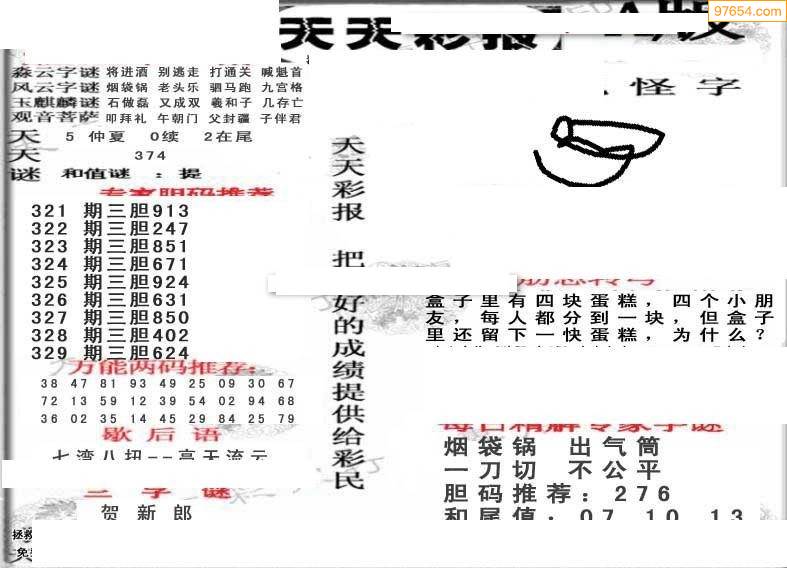 97654.com
天天彩报
A版
森云字谜 将进酒 别逃走 打通关 喊魁首
风云字谜 烟袋锅 老头乐 驷马跑 九宫格
玉麒麟谜 石做磊 又成双 羲和子 几存亡
观音菩萨 叩拜礼 午朝门 父封疆 子伴君
天 5 仲夏 0续 2在尾
天 374
谜 和值谜 : 提
专家胆码推荐
321 期三胆913
322 期三胆247
323 期三胆851
324 期三胆671
325 期三胆924
326 期三胆631
327 期三胆850
328 期三胆402
329 期三胆624
万能两码推荐:
38 47 81 93 49 25 09 30 67
72 13 59 12 39 54 02 94 68
36 02 35 14 45 29 84 25 79
歇后语
七湾八扭--高天流云
三字谜
贺新郎
拯救
天天彩报 把好的成绩提供给彩民
怪字
盒子里有四块蛋糕，四个小朋
友，每人都分到一块，但盒子
里还留下一快蛋糕，为什么？
每日精解专家字谜
烟袋锅 出气筒
一刀切 不公平
胆码推荐: 276
和尾值: 07 10 13